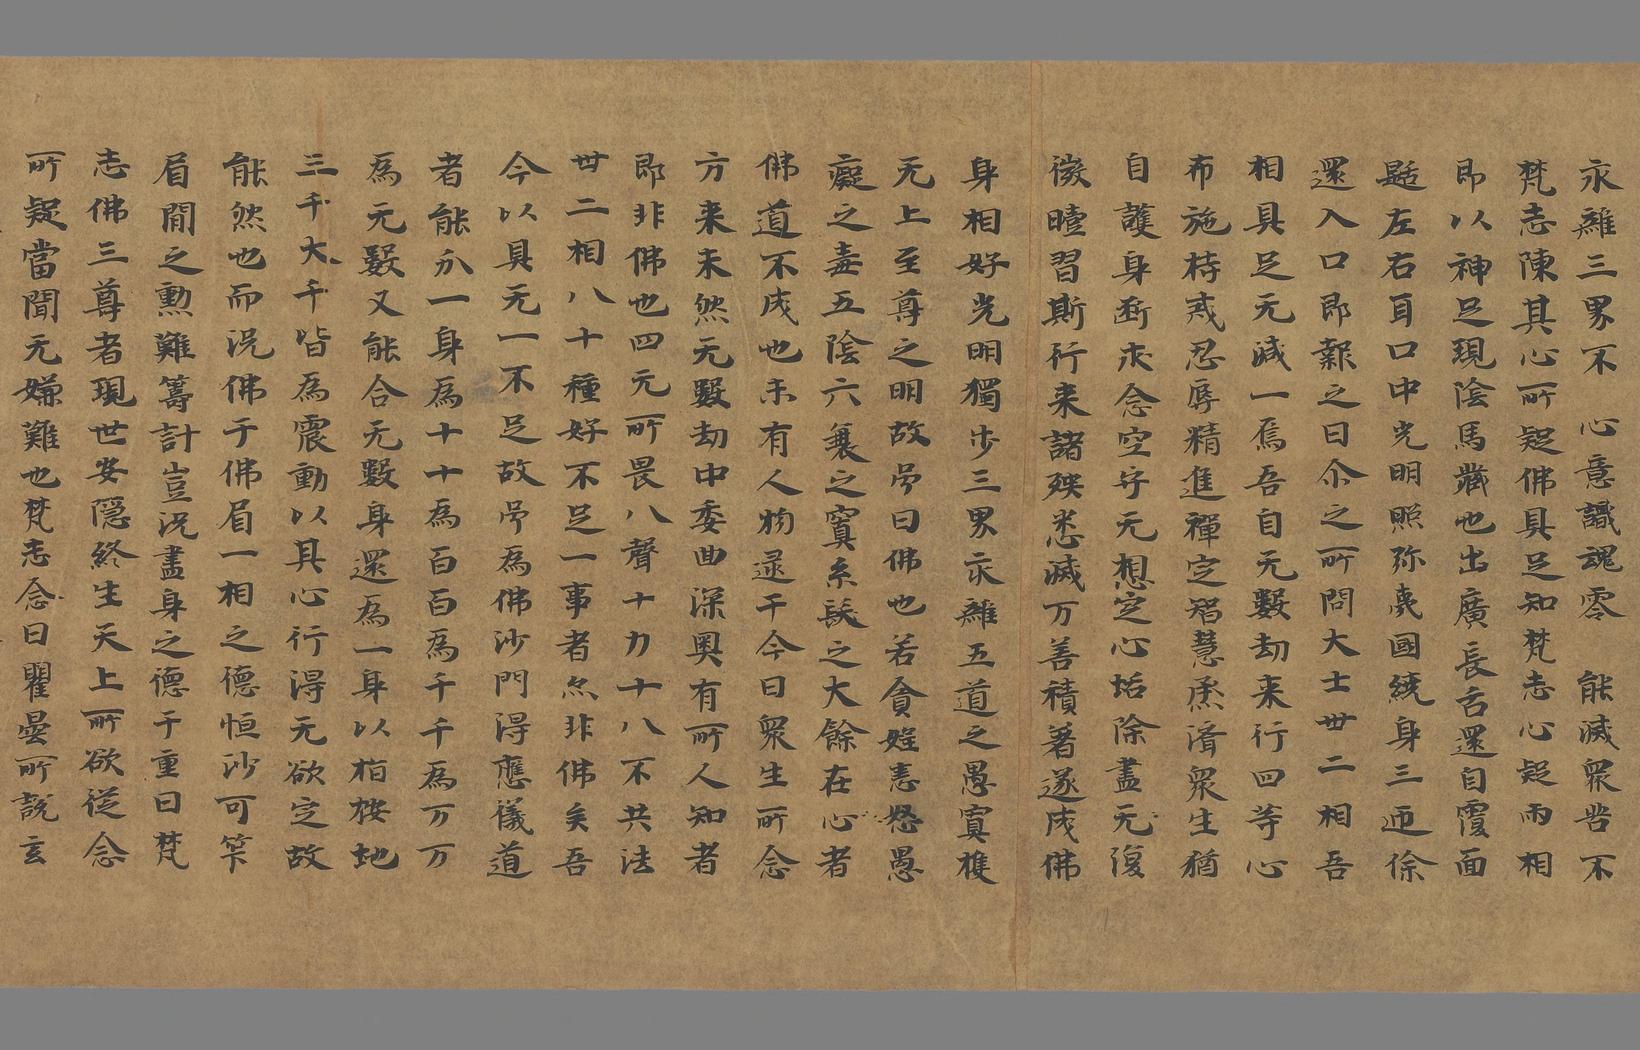 永離三界不 心意識魂零 能滅衆苦不
梵志陳其心所疑佛具足知梵志心疑兩相
即以神足現陰馬藏也出廣長舌還自覆面
舐左右耳口中光明照弥夷國繞身三迊徐
還入口即報之曰尒之所問大士丗二相吾
相具足无減一焉吾自无數劫来行四等心
布施持戒忍辱精進禪定智慧㤙濟衆生猶
自護身斷求念空守无想定心垢除盡无復
微曀習斯行来諸殃悉滅万善積著遂成佛
身相好光明獨步三界永離五道之愚冥獲
无上至尊之明故号曰佛也若貪婬恚怒愚
癡之毒五陰六衰之冥糸髮之大餘在心者
佛道不成也未有人物逮于今日衆生所念
方来未然无數劫中委曲深奥有所人知者
即非佛也四无所畏八聲十力十八不共法
丗二相八十種好不足一事者亦非佛矣吾
今以具无一不足故号為佛沙門得應儀道
者能分一身為十十為百百為千千為万万
為无數又能合无數身還為一身以指按地
三千大千皆為震動以其心行得无欲定故
能然也而況佛于佛眉一相之德恒沙可筭
眉間之勲難籌計豈況盡身之德于重曰梵
志佛三尊者現世安隱終生天上所欲從念
所疑當聞无嫌難也梵志念曰瞿曇所說玄